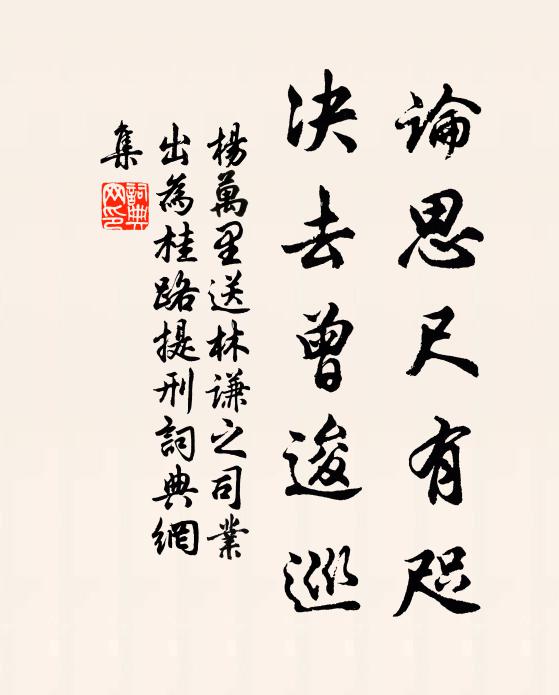 論思尺有咫
决去曾逡巡
楊萬里送林謙之司業
出為桂路提刑詞典網
集
詞典
网印